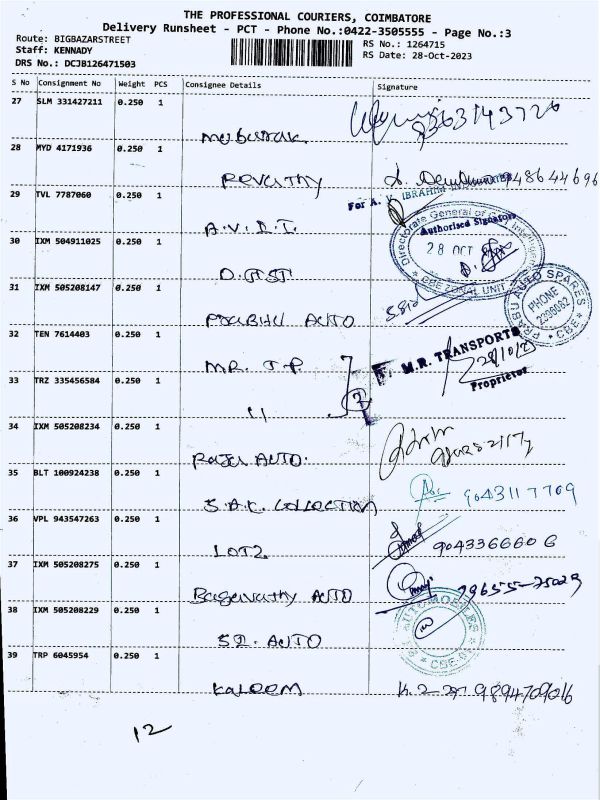 THE PROFESSIONAL COURIERS, COIMBATORE
Delivery Runsheet - PCT - Phone No.:0422-3505555 - Page No.:3
Route: BIGBAZARSTREET
Staff: KENNADY
DRS No.: DCJB126471503
RS No.: 1264715
RS Date: 28-Oct-2023
S No Consignment No Weight PCS Consignee Details Signature
27 SLM 331427211 0.250 1
28 MYD 4171936 0.250 1 Revathy
For A.
29 TVL 7787060 0.250 1 A.V.D.I.
Directorate General of
Authorised Signatory
28 OCT
CBE ZONAL UNIT
30 IXM 504911025 0.250 1 D.GST
31 IXM 505208147 0.250 1 PRABHU AUTO
PRABU AUTO SPARES
PHONE
CBE
32 TEN 7614403 0.250 1 MR. T.P.
M.R. TRANSPORTS
Proprietor
33 TRZ 335456584 0.250 1 "
34 IXM 505208234 0.250 1 Raja AUTO.
35 BLT 100924238 0.250 1 S.A.K. COLLECTION 9043117709
36 VPL 943547263 0.250 1 LOT2 9043366606
37 IXM 505208275 0.250 1 Bagavathy AUTO
38 IXM 505208229 0.250 1 SI. AUTO
AUTOMOBILES
39 TRP 6045954 0.250 1 Kaleem 9894709016
12